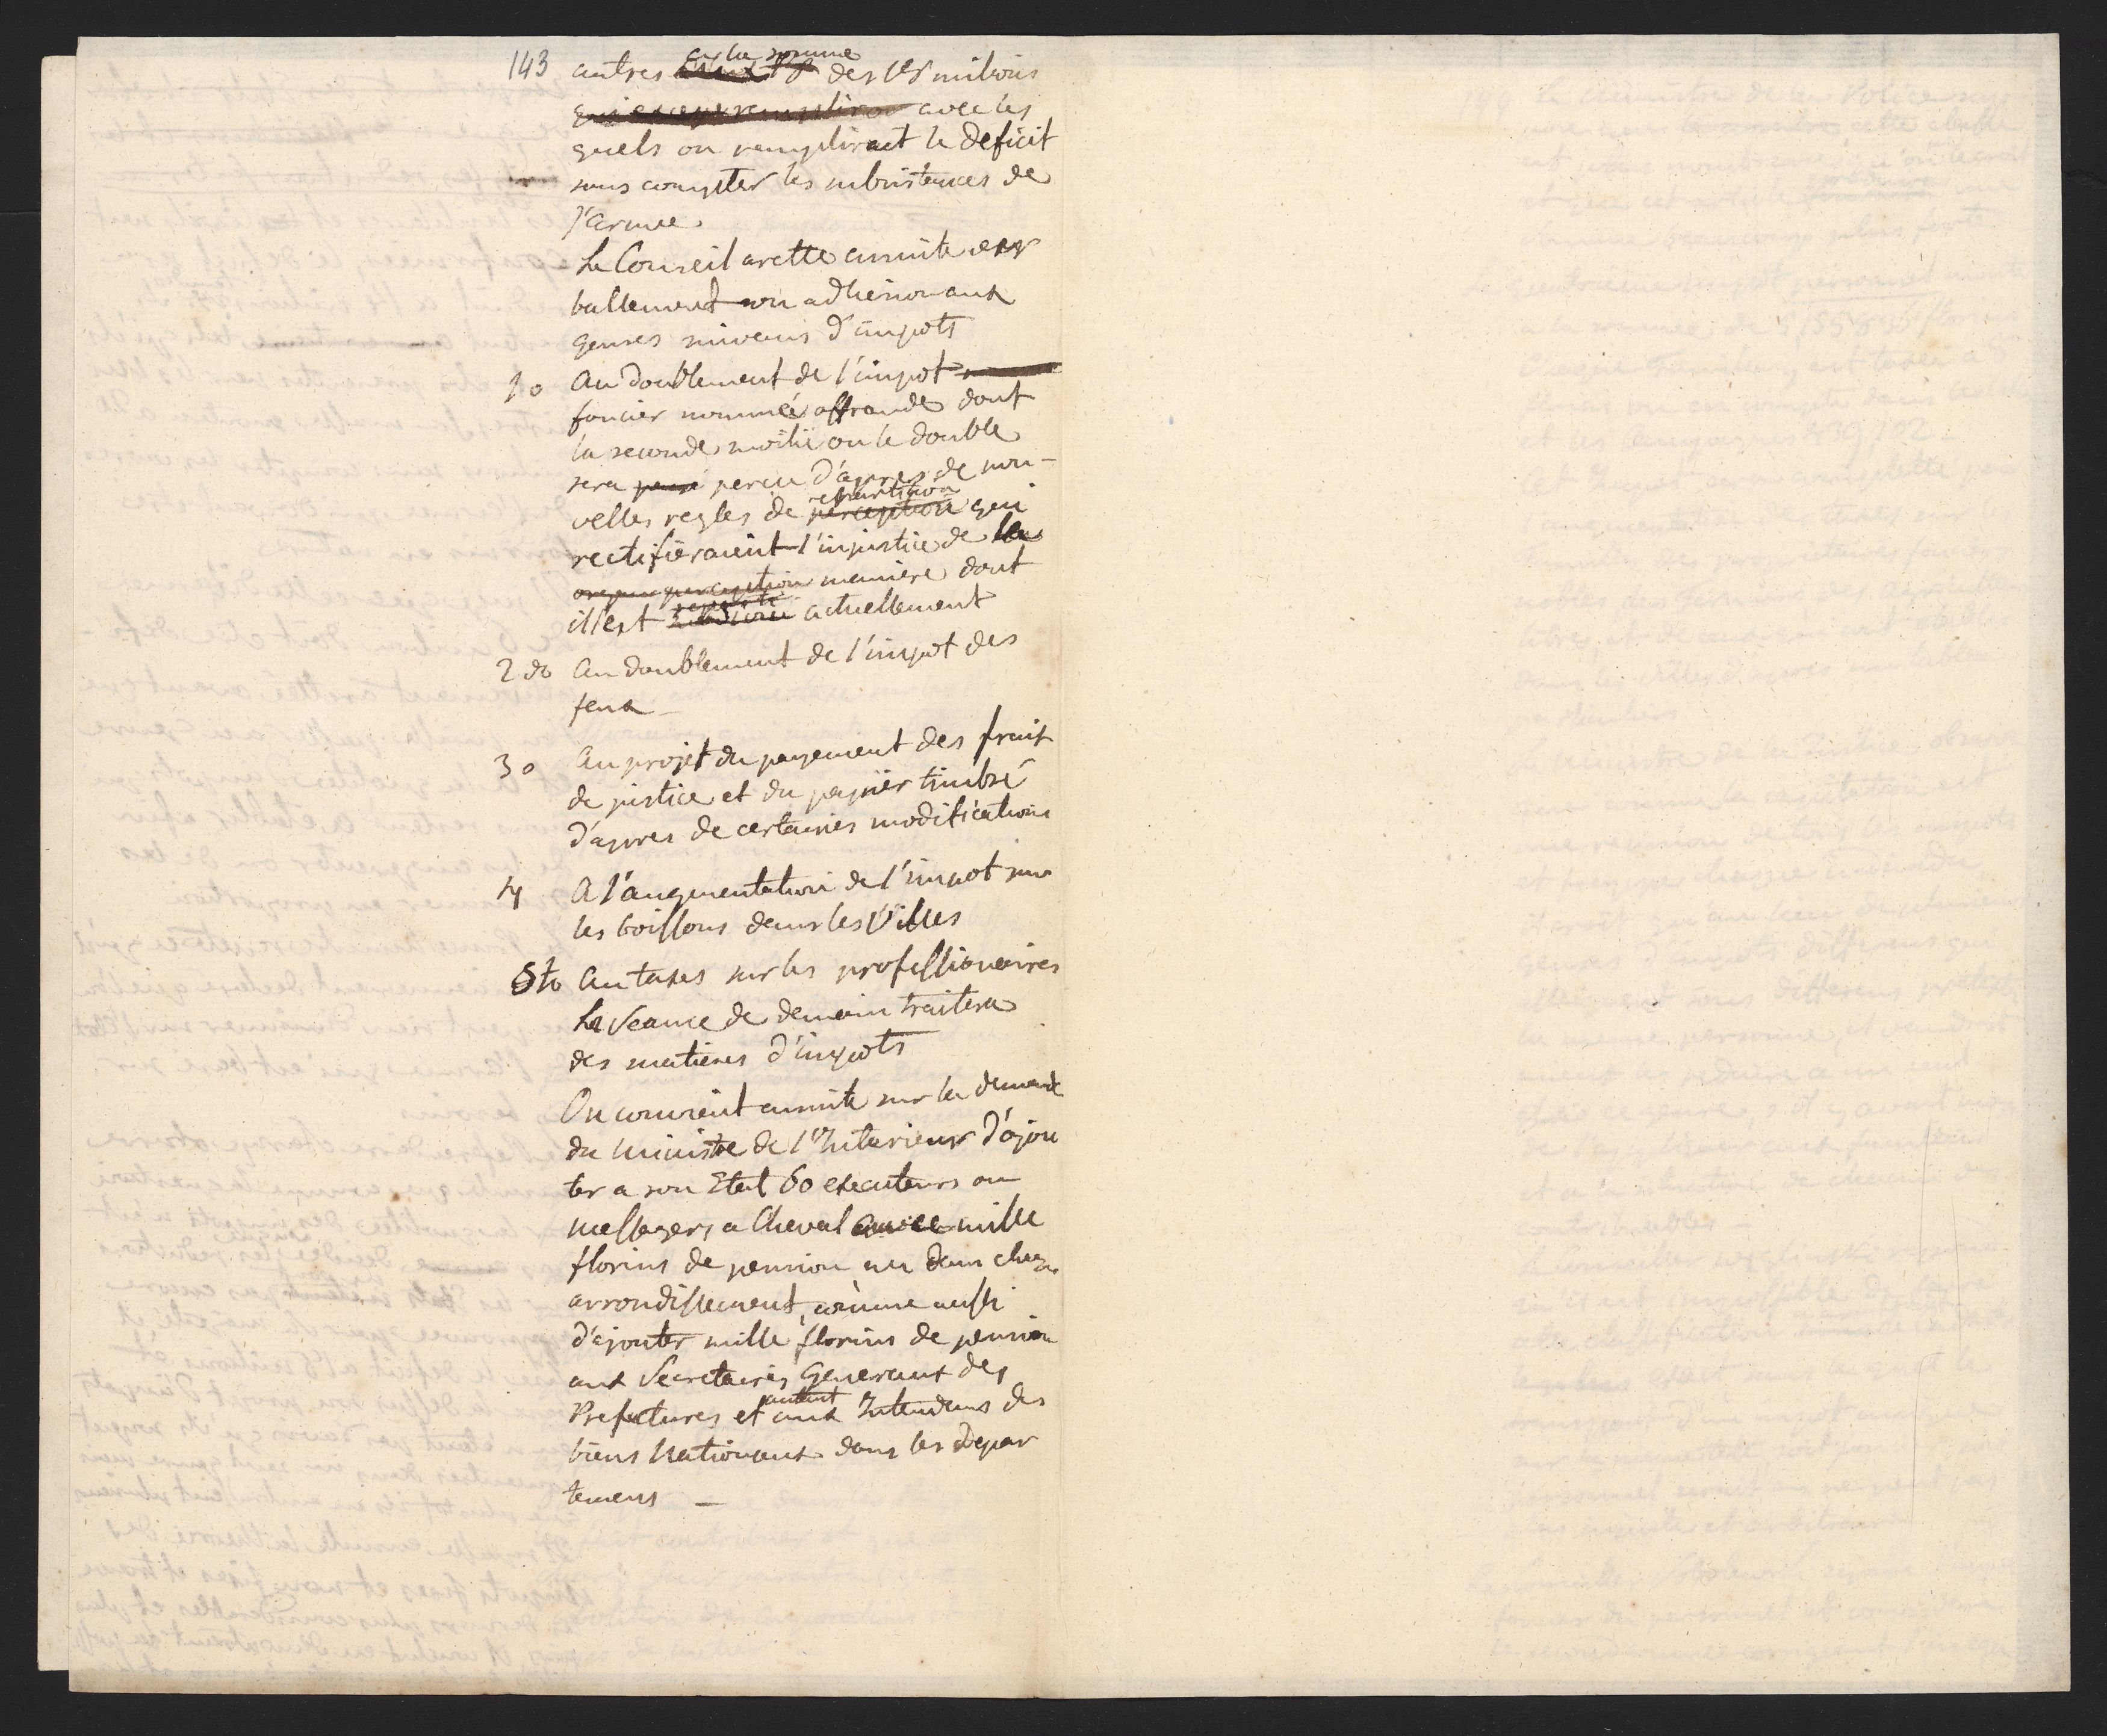 143
sur la somme
autres des 18 milions
avec les
quels on remplirait le deficit
sans compter les subsistances de
l'armee.
Le Conseil arette ensuite ver
ballement son adhesion aux
genres suivans d'impots
1o Au doublement de l'impot
foncier nommé offrande dont
la seconde moitié ou le double
sera percu d'apres de nou-
repartition
velles regles de perception qui
rectifieraient l'injustice de la
perception maniere dont
reparti
il est actuellement
2do Au doublement de l'impot des
feux
3o Au projet du payement des frais
de justice et du papier timbré
d'apres de certaines modifications
4 A l'augmentation de l'impot sur
les boissons dans les Villes
5to Au taxes sur les professionaires
La Seance de demain traitera
des matieres d'impots
On convient ensuite sur la demande
du Ministre de l'Interieur d'ajou
ter a son Etat 60 executeurs ou
messagers a Cheval avec mille
florins de pension un dans chaq
arrondissement, comme aussi
d'ajouter mille florins de pension
aux Secretaires Generaux des
autant
Prefectures et aux Intendans des
biens Nationaux dans les Depar
temens —